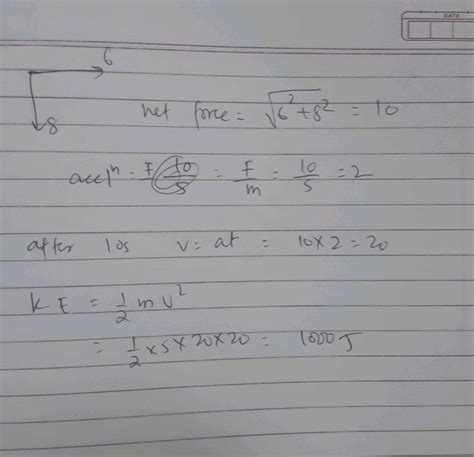 DATE
6
8
net force = √6²+8² = 10
accⁿ = F/m = 10/5 = 2
after 10s v = at = 10×2 = 20
KE = 1/2 mv²
= 1/2 ×5×20×20 = 1000J